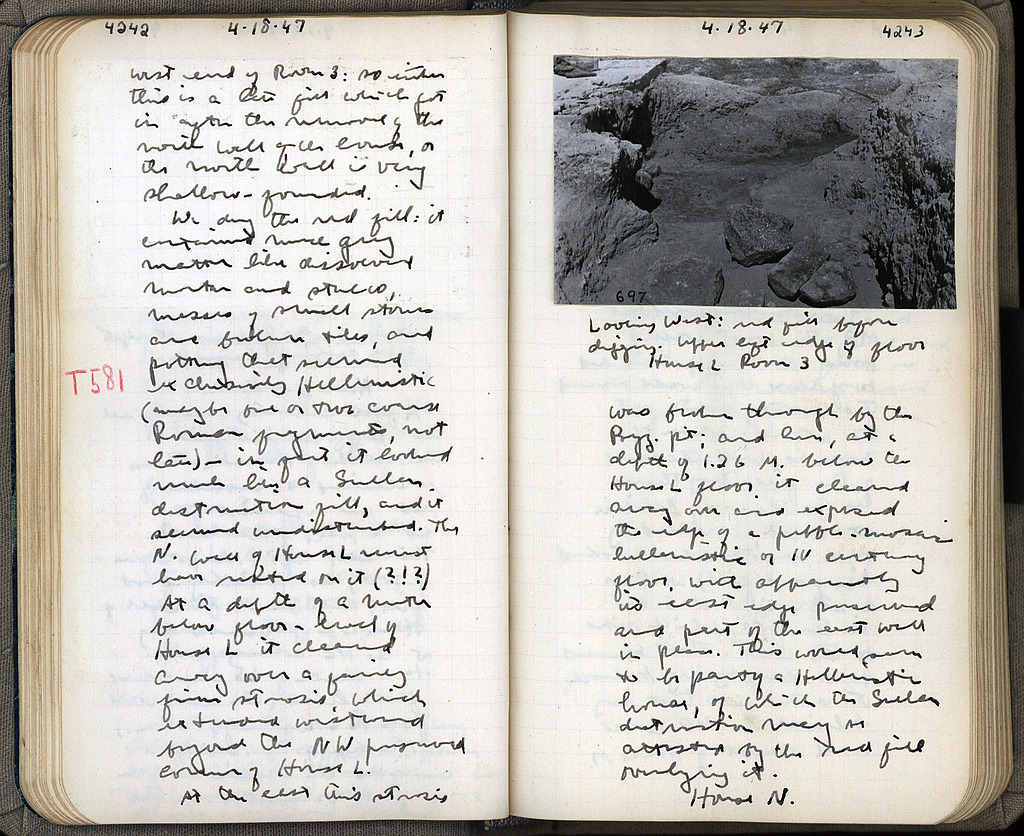 4242 4-18-47
west end of Room 3: so either
this is a late fill which got
in after the removal of the
north wall of the house, or
the north wall is very
shallow-founded.
We dug the red fill: it
contained more grey
matter like dissolved
mortar and stucco,
masses of small stones
and broken tiles, and
pottery that seemed
T581
exclusively Hellenistic
(maybe one or two coarse
Roman fragments, not
late) - in part it looked
much like a Sullan
destruction fill, and it
seemed undisturbed. The
N. wall of House L must
have rested on it (?!?)
At a depth of a meter
below floor-level of
House L it cleared
away over a fairly
firm strosis which
extended westward
beyond the NW preserved
corner of House L.
At the east this strosis
4.18.47 4243
697
Looking West: red fill before
digging. Upper left edge of floor
House L Room 3
was broken through by the
Byz. pit; and here, at a
depth of 1.26 M. below the
House L floor it cleared
away over and exposed
the edge of a pebble-mosaic
hellenistic or IV century
floor with apparently
its east edge preserved
and part of the east wall
in place. This would seem
to be partly a Hellenistic
house, of which the Sullan
destruction may be
attested by the red fill
overlying it.
House N.